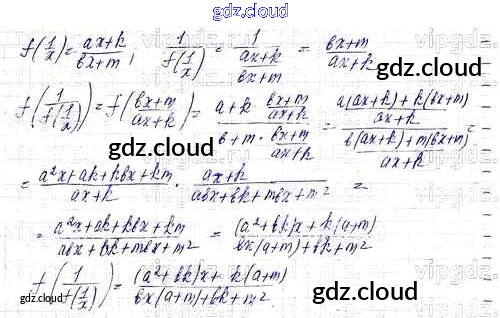 gdz.cloud
f(1/x) = (ax+k)/(bx+m), 1/f(1/x) = 1/((ax+k)/(bx+m)) = (bx+m)/(ax+k)
gdz.cloud
f(1/f(1/x)) = f((bx+m)/(ax+k)) = (a+k·(bx+m)/(ax+k))/(b+m·(bx+m)/(ax+k)) = ((a(ax+k)+k(bx+m))/(ax+k))/((b(ax+k)+m(bx+m))/(ax+k)) =
gdz.cloud
= (a²x+ak+kbx+km)/(ax+k) · (ax+k)/(abx+bk+mbx+m²) =
= (a²x+ak+kbx+km)/(abx+bk+mbx+m²) = ((a²+bk)x+k(a+m))/(bx(a+m)+bk+m²)
gdz.cloud
f(1/f(1/x)) = ((a²+bk)x+k(a+m))/(bx(a+m)+bk+m²)
gdz.cloud
gdz.cloud